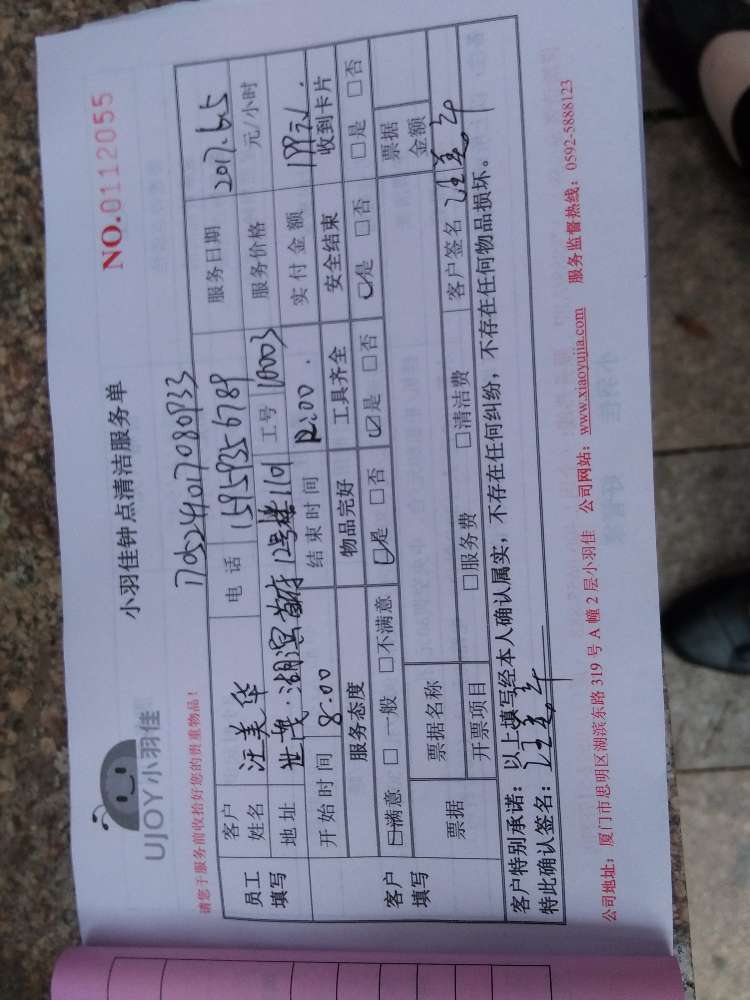 UJOY小羽佳
小羽佳钟点清洁服务单
NO.0112055
请您于服务前收拾好您的贵重物品!
17052401708093​3
员工填写 客户姓名 汪美华 电话 15959356789 服务日期 2017.6.5
地址 世茂·湖滨首府12号楼1101 工号 10003 服务价格 元/小时
开始时间 8:00 结束时间 12:00. 实付金额 199元/.
客户填写 服务态度 物品完好 工具齐全 安全结束 收到卡片
☑满意 □一般 □不满意 ☑是 □否 ☑是 □否 ☑是 □否 □是 □否
票据 票据名称 票据金额
开票项目 □服务费 □清洁费 客户签名
客户特别承诺:以上填写经本人确认属实,不存在任何纠纷,不存在任何物品损坏。
特此确认签名:
公司地址:厦门市思明区湖滨东路 319 号 A 幢 2 层小羽佳 公司网站:www.xiaoyujia.com 服务监督热线:0592-5888123